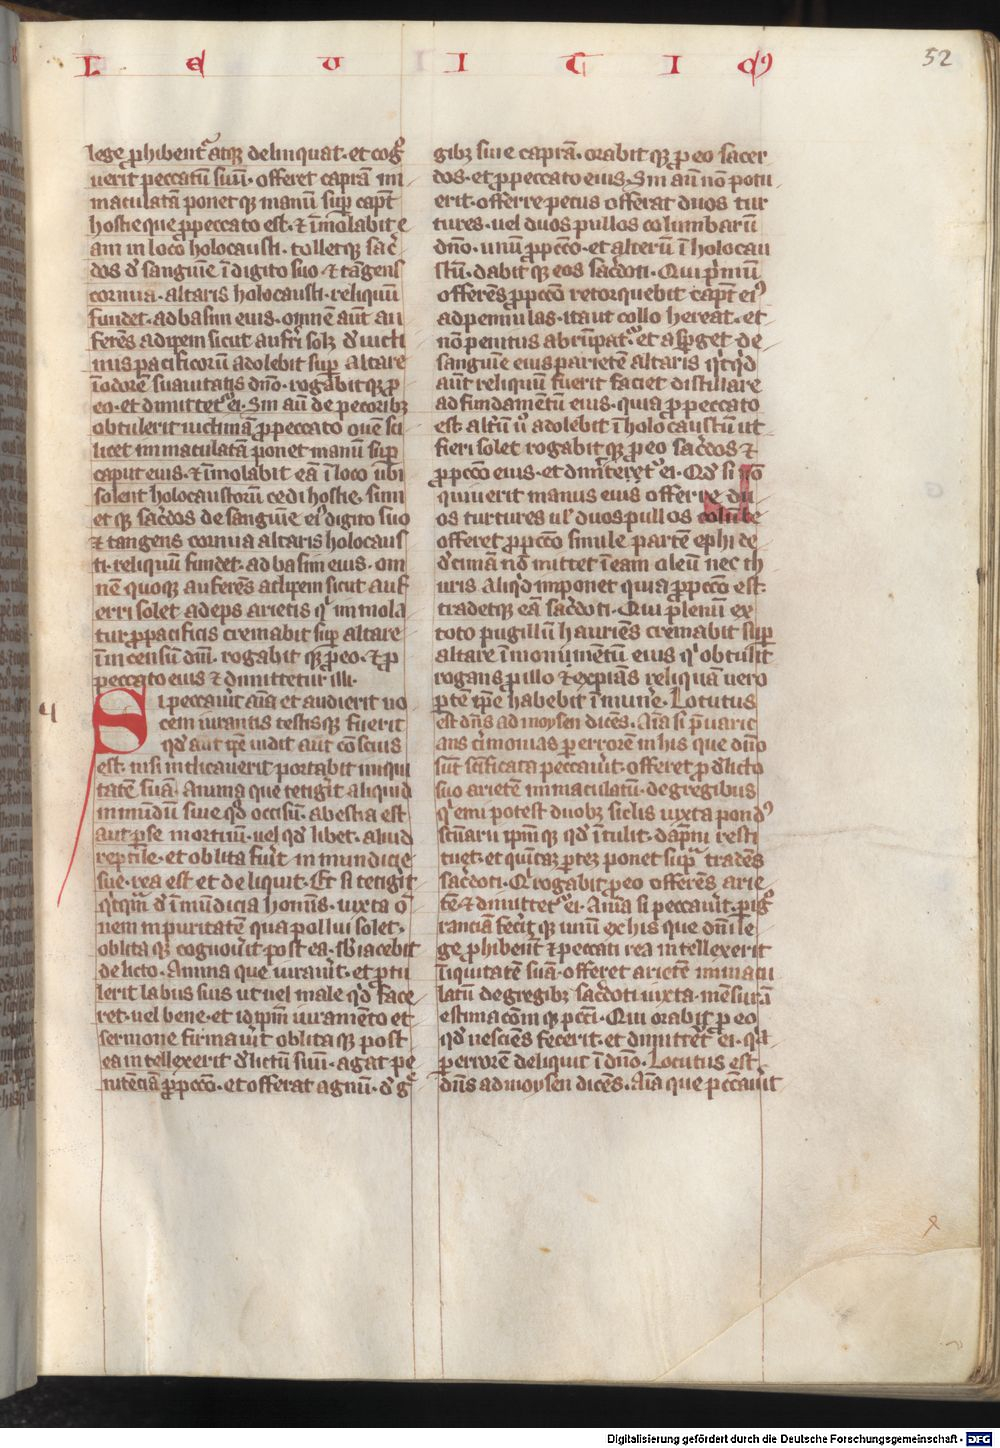 L e u I T I cꝰ
52
lege ꝓhibent᷑ atqꝫ delinquat · et cog
uerit peccatū suū · offeret caprā im
maculatā ponet qꝫ manū suꝑ capt̄
hostie que ꝓ peccato est · ⁊ īmolabit e
am in loco holocausti · tollet qꝫ sac̄
dos d̓ sanguīe ī digito suo ⁊ tāgens
cornua · altaris holocausti · reliquū
fundet · ad basim eius · omnem aūt au
ferēs adipem sicut aufri solꝫ d̓ uicti
mis pacificorū adolebit suꝑ altare
ī odorē suauitatis dn̄o · rogabit qꝫ ꝓ
eo · et dimittet᷑ ei · Sin aū de pecoribꝫ
obtulerit uictimā ꝓ peccato oue sci
licet immaculatā ponet manū suꝑ
caput eius · ⁊ īmolabit eā ī loco ubi
solent holocaustorū cedi hostie · sum
et qꝫ sac̄dos de sanguīe eiꝰ digito suo
⁊ tangens cornua altaris holocaus
ti · reliquū fundet · ad basim eius · om
nē quoqꝫ auferēs adipem sicut auf
erri solet adeps arietis q̇ immola
tur ꝓ pacificis cremabit suꝑ altare
ī incensū dn̄i · rogabit qꝫ ꝓ eo · ⁊ ꝓ
peccato eius ⁊ dimittetur illi ·
SI peccau̓it aīa et audierit uo
cem iurantis testis qꝫ fuerit
qd̓ aut ip̄e uidit aut cō scius
est · nisi indicauerit portabit iniqui
tatem suā · Anima que tetig̓it aliquid
inmūdum siue qd̓ occisū · a bestia est
aut ꝑ se mortuū · uel qd̓ libet · aliud
reptile · et oblita fu̓it inmundicie
sue · rea est et deliquit · Et si tetig̓it
q̇cqm̄ d̓ īmūdicia homīs · iuxta oi
nem inpuritatē qua pollui solet ·
oblita qꝫ cognou̓it post ea · sb̓iacebit
delicto · Anima que iurau̓it · et ꝓtu
lerit labiis suis ut uel male qd̓ face
ret · uel bene · et id ipm̄ iuramēto et
sermone firmau̓it oblita qꝫ post
ea intellexerit d̓lictū suū · agat pe
nitēciā ꝓ pcc̄o · et offerat agnū · d̓ g̓
gibꝫ siue caprā · orabit qꝫ ꝓ eo sacer
dos · et ꝓ peccato eius · Sin aū nō potu
erit · offerre pecus offerat duos tur
tures · uel duos pullos columbarū
dn̄o · unū ꝓ pcc̄o · et alterū ī holocau
stū · dabit qꝫ eos sac̄doti · Qui p̓mū
offerēs ꝓ pcc̄o retorquebit capt̄ eiꝰ
ad pennulas · ita ut collo hereat · et
nō penitus abrūpat᷑ · et aspget de
sanguīe eius parietē altaris q̇cq̇d
aūt reliquū fuerit faciet distillare
ad fundamētū eius · quia ꝓ peccato
est · altū u̓ adolebit ī holocaustū ut
fieri solet rogabit qꝫ ꝓ eo sac̄dos ⁊
ꝓ pcc̄o eius · et dimit̄teret᷑ ei · Qd̓ si nō
quiuerit manus eius offerre du
os turtures ul̓ duos pullos colūbe
offeret ꝓ pcc̄o simile partē ephi de
c̓imā nō mittet ī eam oleū nec th
uris aliq̇d imponet quia ꝓ pcc̄o est ·
tradet qꝫ eā sac̄doti · Qui plenū ex
toto pugillū hauriēs cremabit suꝑ
altare ī monumētū eius q̇ obtulit
rogans ꝓ illo ⁊ expiās reliquā uero
ꝑtē ip̄e habebit ī mun̓e · Locutus
est dn̄s ad moysen dicēs · Aīa si p̄uaric
ans c̓imonias ꝑ errorē in his que dn̄o
sūt sc̄ificata peccau̓it · offeret ꝓ d̓licto
suo arietē immaculatū · de gregibus
q̇ emi potest duobꝫ siclis iuxta pondꝰ
sc̄uarii ipm̄ qꝫ qd̓ ītulit · dāpni resti
tuet · et quītaꝫ ꝑteꝫ ponet supͣ tradēs
sac̄doti · Q̇ rogabit ꝓ eo offerēs arie
tē ⁊ dimittet᷑ ei · Aīma si peccau̓it · ꝑ ig
ranciā fec̓it qꝫ unū ex his que dn̄i le
ge ꝓhibent᷑ ⁊ peccati rea intellexerit
īiquitatē suā · offeret arietē immacu
latū de gregibꝫ sac̄doti iuxta · mēsurā
estimacōm qꝫ pcc̄i · Qui orabit ꝓ eo
qd̓ nesciēs fecerit · et dimittet᷑ ei · qͣ
ꝑ errorē deliquit ī dn̄o · Locutus est
dn̄s ad moysen dicēs · Aīa que pcc̄au̓it
Digitalisierung gefördert durch die Deutsche Forschungsgemeinschaft - DFG